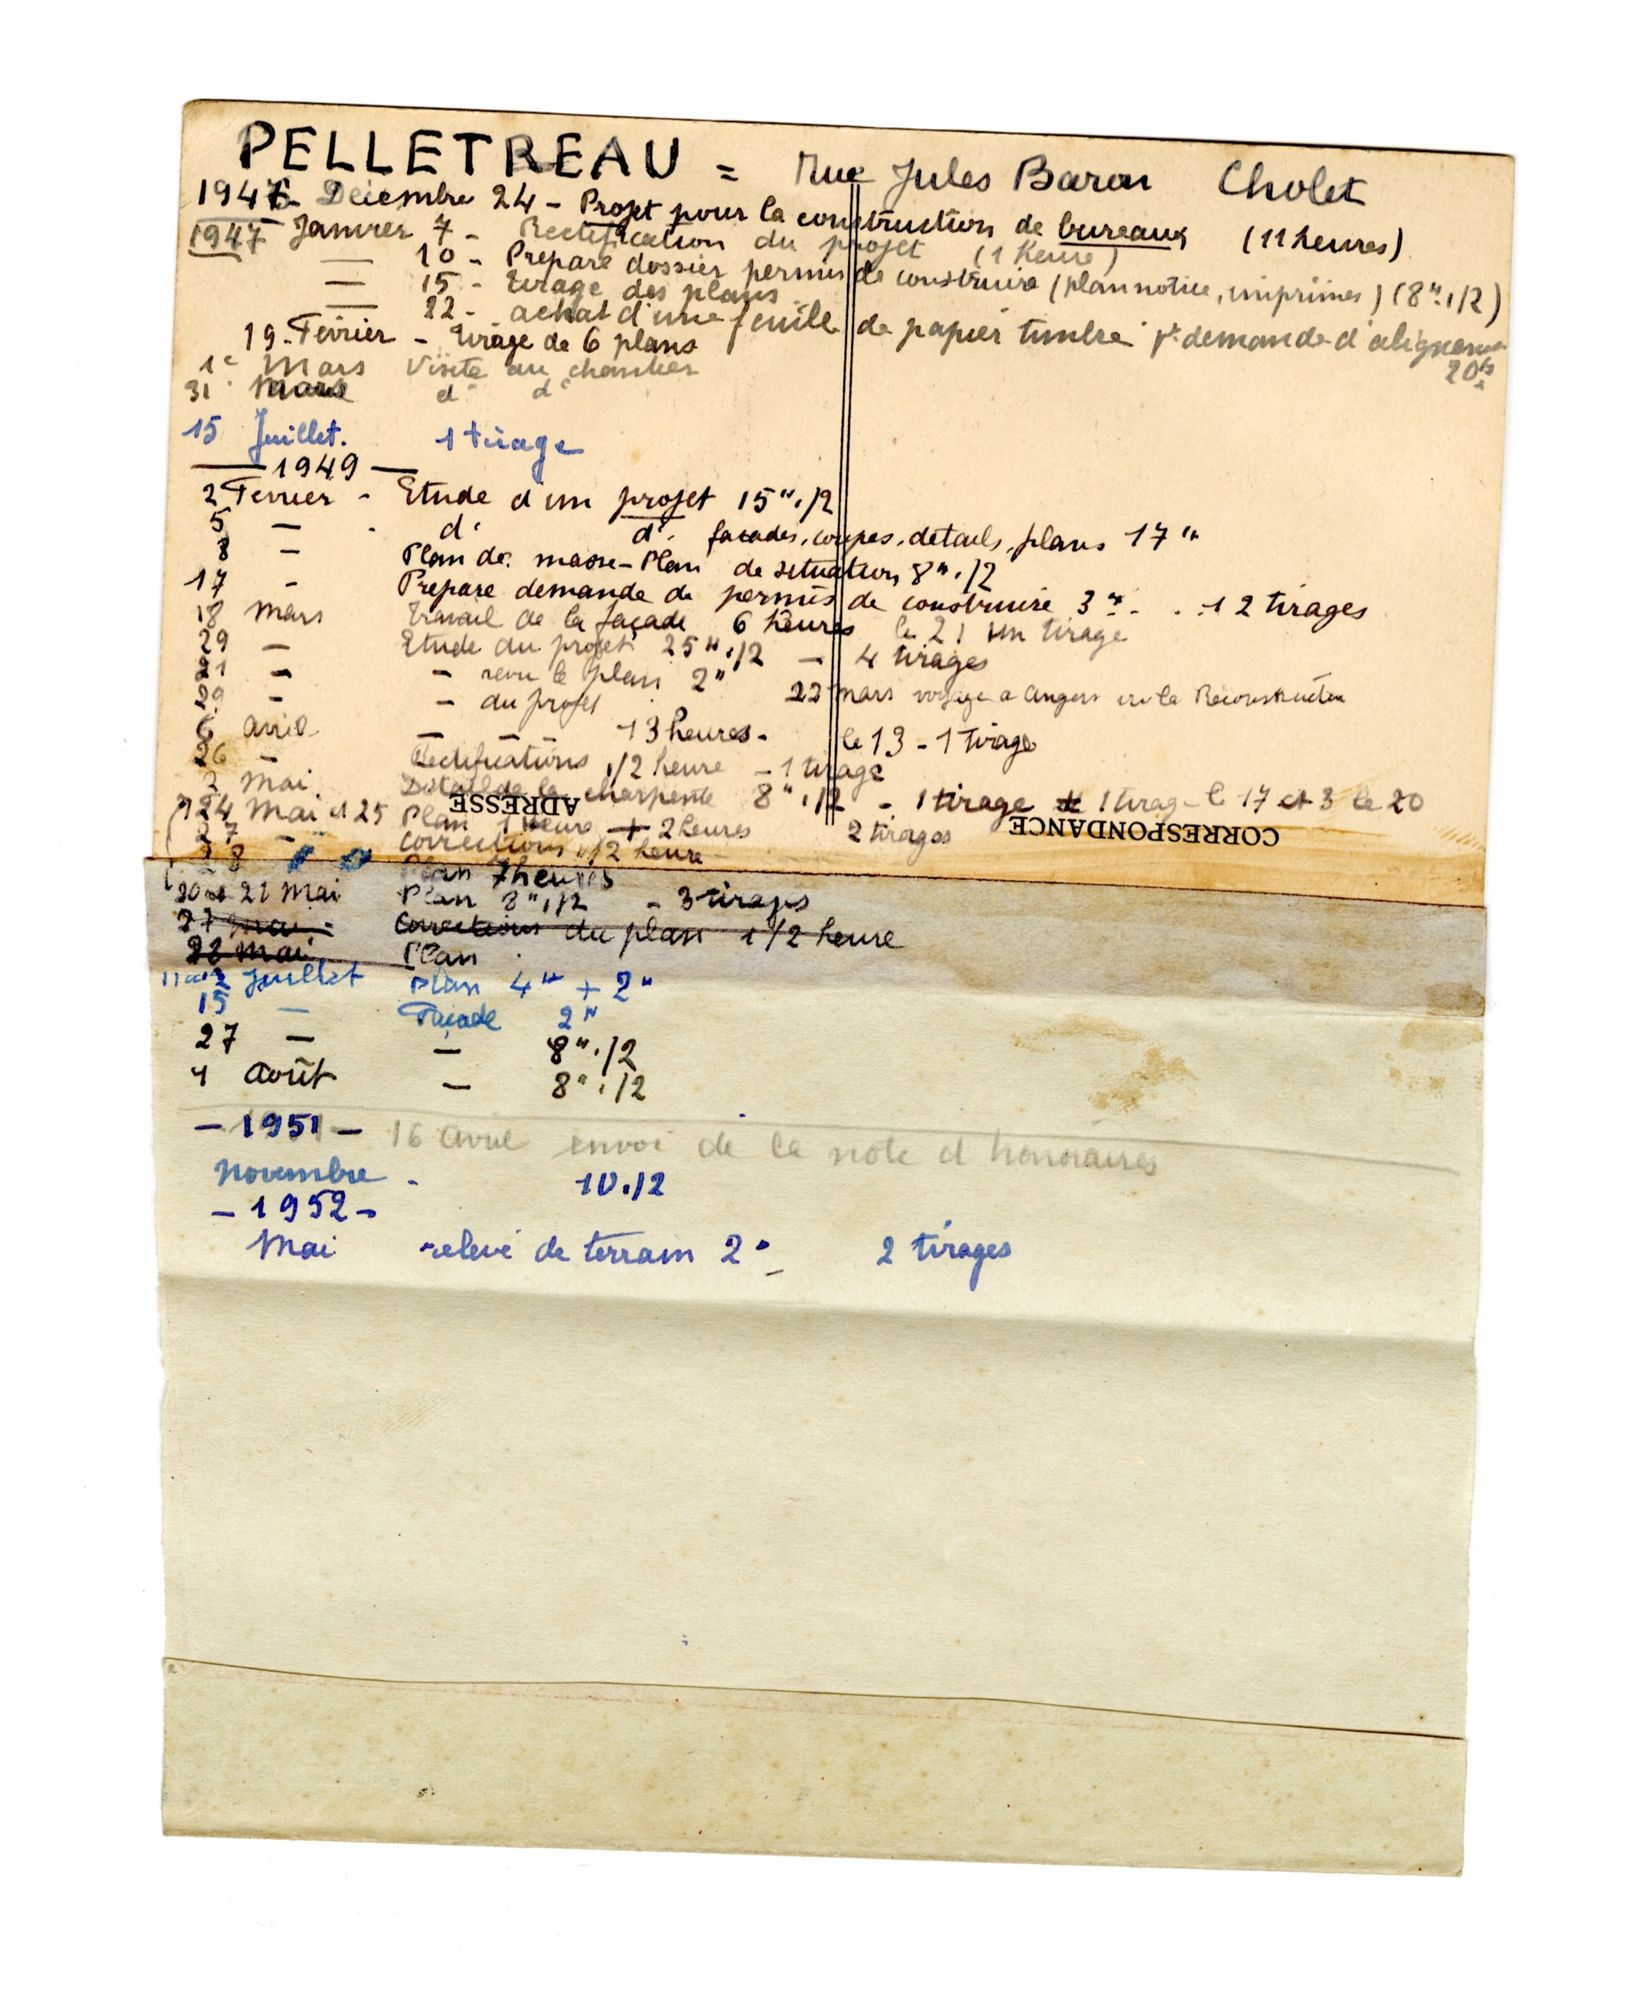 PELLETREAU = Rue Jules Baron Cholet
1946 - Décembre 24 - Projet pour la construction de bureaux (11 heures)
1947 Janvier 7 - Rectification du projet (1 heure)
— 10 - Prépare dossier permis de construire (plan notice, imprimés) (8" 1/2)
— 15 - tirage des plans
— 22 - achat d'une feuille de papier timbré pr demande d'alignement
20 frs
19 - Février - tirage de 6 plans
1e Mars Visite au chantier
31 Mars do do
15 Juillet. 1 tirage
— 1949 —
2 Février - Etude d'un projet 15" 1/2
5 — - do do façades, coupes, détails, plans 17"
8 — Plan de masse - Plan de situation 8" 1/2
17 - Prépare demande de permis de construire 3" - 12 tirages
18 Mars travail de la façade 6 heures le 21 un tirage
29 — Etude du projet 25" 1/2 — 4 tirages
21 — - revu le plan 2" 22 mars voyage a Angers vu la Reconstruction
29 - — du projet
6 avril — — — 13 heures - le 13 - 1 tirage
26 — Rectifications 1/2 heure - 1 tirage
2 Mai Détail de la charpente 8" 1/2 - 1 tirage 1 tirage le 17 et 3 le 20
ADRESSE
CORRESPONDANCE
24 Mai et 25 Plan 1 heure + 2 heures 2 tirages
27 — " corrections 1/2 heure
28 Plan 7 heures
20 et 21 Mai Plan 8" 1/2 - 3 tirages
27 mai - Corrections du plan 1 1/2 heure
28 mai Plan
11 et 12 Juillet plan 4" + 2"
15 — Façade 2"
27 — — 8" 1/2
4 Août — 8" 1/2
- 1951 - 16 avril envoi de la note d'honoraires
Novembre - 10 1/2
- 1952 -
Mai relevé de terrain 2" - 2 tirages